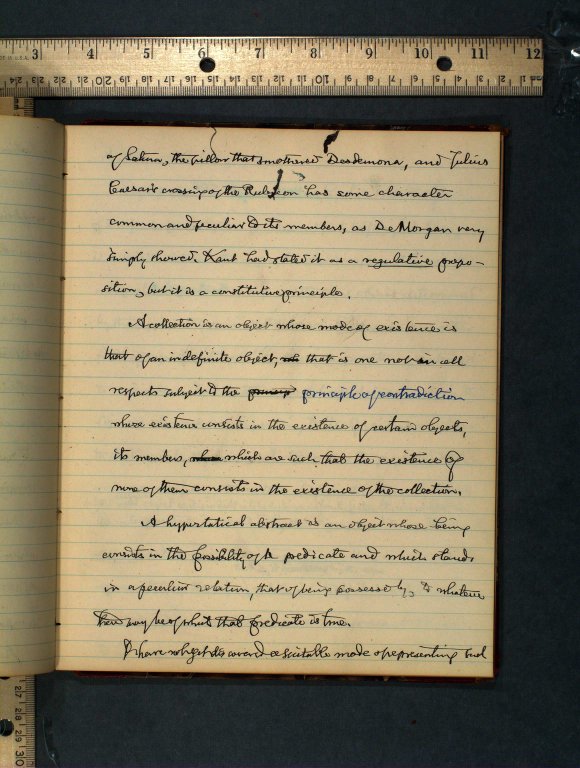 3 4 5 6 7 8 9 10 11 12
of Saturn, the pillow that smothered Desdemona, and Julius
Caesar's crossing of the Rubicon has some character
common and peculiar to its members, as DeMorgan very
simply showed. Kant had stated it as a regulative propo-
sition, but it is a constitutive principle.
A collection is an object whose mode of existence is
that of an indefinite object, that is one not in all
respects subject to the princip principle of contradiction
whose existence consists in the existence of certain objects,
its members, which are such that the existence of
none of them consists in the existence of the collection.
A hypostatical abstract is an object whose being
consists in the possibility of a predicate and which stands
in a peculiar relation, that of being possessed by, to whatever
there may be of which that predicate is true.
I have not yet discovered a suitable mode of representing such
27 28 29 30